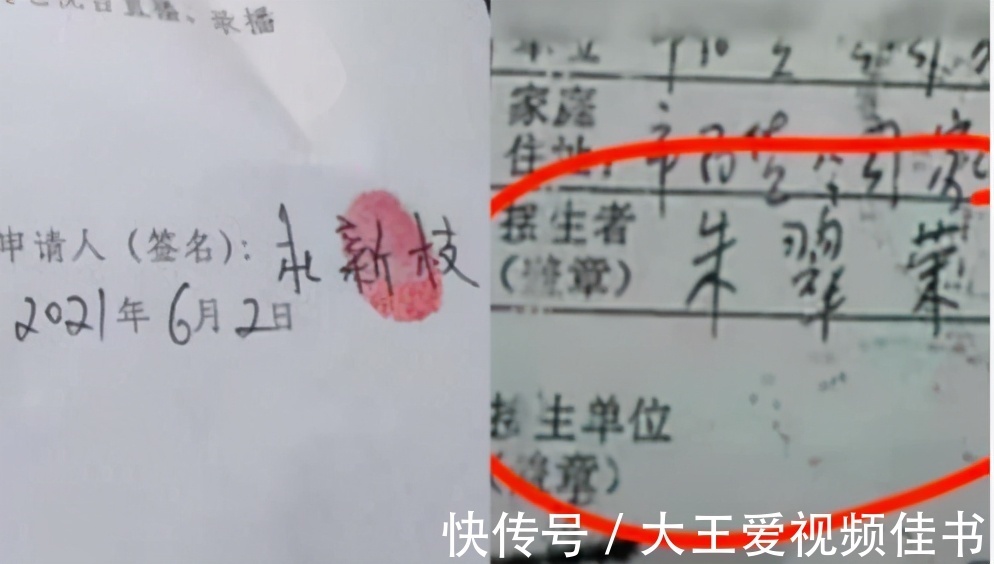 直播、录播
申请人（签名）：永新枝
2021年6月2日
家庭
住址
接生者
（签章）
朱翠荣
接生单位
（签章）
快传号 / 大王爱视频佳书